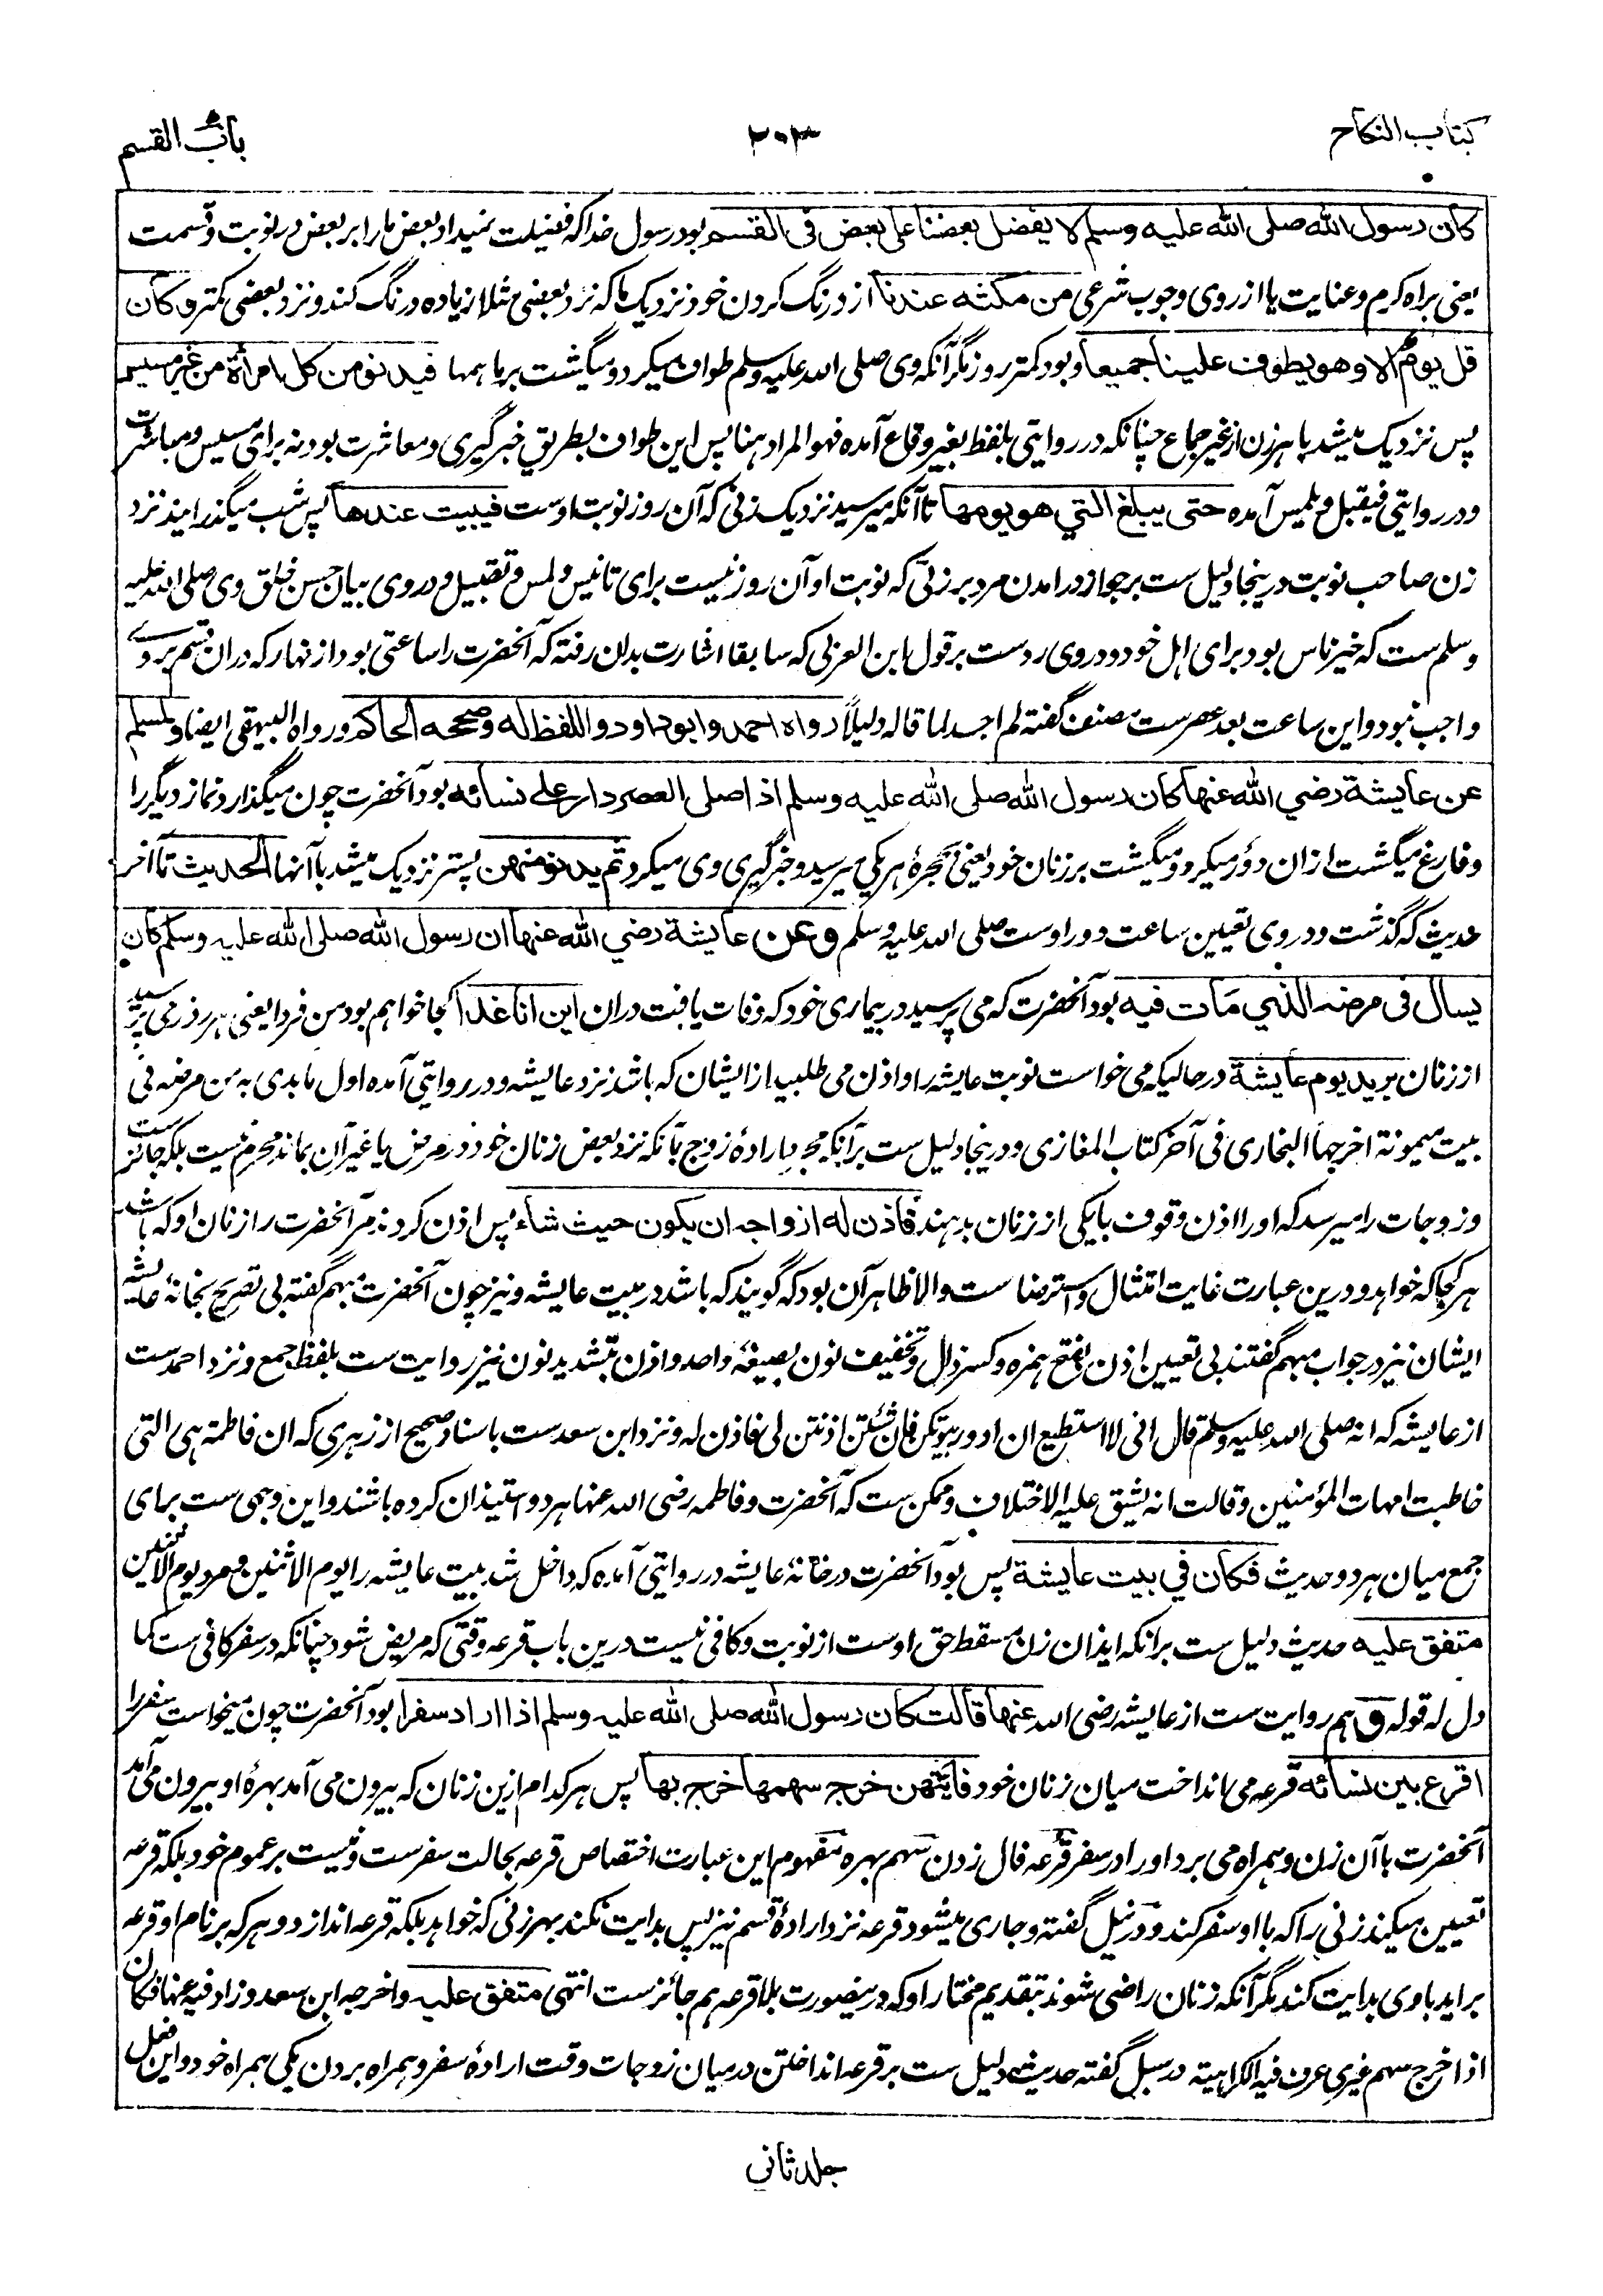 كتاب النكاح
٢٠٣
باب القسم
كان رسول الله صلى الله عليه وسلم لا يفضل بعضنا على بعض فى القسم بود رسول خدا که فضیلت نمیداد بعض ما را بر بعض در نوبت و قسمت
یعنی براه کرم و عنایت یا از روی وجوب شرعی من مكثه عندنا از درنگ کردن خود نزدیک ما که نزد بعضی مثلا زیاده درنگ کند و نزد بعضی کمتر و كان
قل يوم الا وهو يطوف علينا جميعا و بود کمتر روز مگر آنکه وی صلی الله علیه وسلم طواف میکرد و میگشت بر ما همها فيدنو من كل امرأة من غير مسيس
پس نزدیک میشد با هر زن از غیر جماع چنانکه در روایتی بلفظ بغیر وقاع آمده فهو المراد هنا پس این طواف بطریق خبرگیری و معاشرت بود نه برای مسیس و مباشرت
و در روایتی فیقبل و یلمس آمده حتى يبلغ التي هو يومها تا آنکه میرسید نزدیک زنی که آن روز نوبت اوست فيبيت عندها پس شب میگذرانید نزد
زن صاحب نوبت درینجا دلیل ست بر جواز درامدن مرد بر زنی که نوبت او آن روز نیست برای تانیس و لمس و تقبیل و در وی بیان حسن خلق وی صلی الله علیه
وسلم ست که خیر ناس بود برای اهل خود و در وی ردست بر قول ابن العربی که سابقا اشارت بدان رفته که آنحضرت را ساعتی بود از نهار که دران قسم بر وے
واجب نبود و این ساعت بعد عصرست مصنف گفته لم اجد لما قاله دلیلاً رواه احمد وابو داود واللفظ له وصححه الحاكم ورواه البیهقی ایضا ولمسلم
عن عايشة رضي الله عنها كان رسول الله صلى الله عليه وسلم اذا صلى العصر دار على نسائه بود آنحضرت چون میگذارد نماز دیگر را
و فارغ میگشت ازان دور میکرد و میگشت بر زنان خود یعنی بحجرهٔ هر یکی میرسید و خبرگیری وی میکرد ثم يدنو منهن پستر نزدیک میشد با آنها الحديث تا آخر
حدیث که گذشت و در وی تعیین ساعت دور اوست صلی الله علیه وسلم وعن عايشة رضي الله عنها ان رسول الله صلى الله عليه وسلم كان
يسال فى مرضه الذي مات فيه بود آنحضرت که می پرسید در بیماری خود که وفات یافت دران اين انا غدا کجا خواهم بود من فردا یعنی هر روز می پرسید
از زنان يريد يوم عايشة در حالیکه می خواست نوبت عایشه را و اذن می طلبید از ایشان که باشد نزد عایشه و در روایتی آمده اول ما بدی به من مرضه فی
بیت میمونة اخرجها البخاری فی آخر کتاب المغازی و درینجا دلیل ست برآنکه مجرد ارادهٔ زوج بآنکه نزد بعض زنان خود در مرض یا غیر آن بماند محرم نیست بلکه جائز ست
و زوجات را میرسد که او را اذن وقوف با یکی از زنان بدهند فاذن له ازواجه ان يكون حيث شاء پس اذن کردند مر آنحضرت را زنان او که باشد
هر کجا که خواهد و درین عبارت غایت امتثال و استرضا ست والا ظاهر آن بود که گویند که باشد در بیت عایشه و نیز چون آنحضرت مبهم گفته بی تصریح بخانهٔ عایشه
ایشان نیز در جواب مبهم گفتند بی تعیین اذن بفتح همزه و کسر ذال و تخفیف نون بصیغهٔ واحد و اذن بتشدید نون نیز روایت ست بلفظ جمع و نزد احمدست
از عایشه که انه صلی الله علیه وسلم قال انی لا استطیع ان ادور بیوتکن فان شئتن اذنتن لی فاذن له و نزد ابن سعدست باسناد صحیح از زهری که ان فاطمة هی التی
خاطبت امهات المؤمنین وقالت انه یشق علیه الاختلاف و ممکن ست که آنحضرت و فاطمه رضی الله عنها هر دو استیذان کرده باشند و این وجهی ست برای
جمع میان هر دو حدیث فكان في بيت عايشة پس بود آنحضرت در خانهٔ عایشه در روایتی آمده که داخل شد بیت عایشه را یوم الاثنین و مرد یوم الاثنین
متفق عليه حدیث دلیل ست برانکه ایذان زن مسقط حق اوست از نوبت و کافی نیست درین باب قرعه وقتی که مریض شود چنانکه در سفر کافی ست کما
دل له قوله و هم روایت ست از عایشه رضی الله عنها قالت كان رسول الله صلى الله عليه وسلم اذا اراد سفرا بود آنحضرت چون میخواست سفر را
اقرع بين نسائه قرعه می انداخت میان زنان خود فايتهن خرج سهمها خرج بها پس هر کدام ازین زنان که بیرون می آمد بهرهٔ او بیرون می آمد
آنحضرت با آن زن و همراه می برد او را در سفر قرعه فال زدن سهم بهره مفهوم این عبارت اختصاص قرعه بحالت سفرست و نیست بر عموم خود بلکه قرعه
تعیین میکند زنی را که با او سفر کند و در نیل گفته و جاری میشود قرعه نزد ارادهٔ قسم نیز پس بدایت نکند بهر زنی که خواهد بلکه قرعه اندازد و هر که بر نام او قرعه
براید با وی بدایت کند مگر آنکه زنان راضی شوند بتقدیم مختار او که درینصورت بلا قرعه هم جائزست انتهی متفق عليه واخرجه ابن سعد وزاد فیه عنها فکان
اذا خرج سهم غیری عرف فیه الکراهیة در سبل گفته حدیث دلیل ست بر قرعه انداختن درمیان زوجات وقت ارادهٔ سفر و همراه بردن یکی همراه خود و این فعل
جلد ثاني